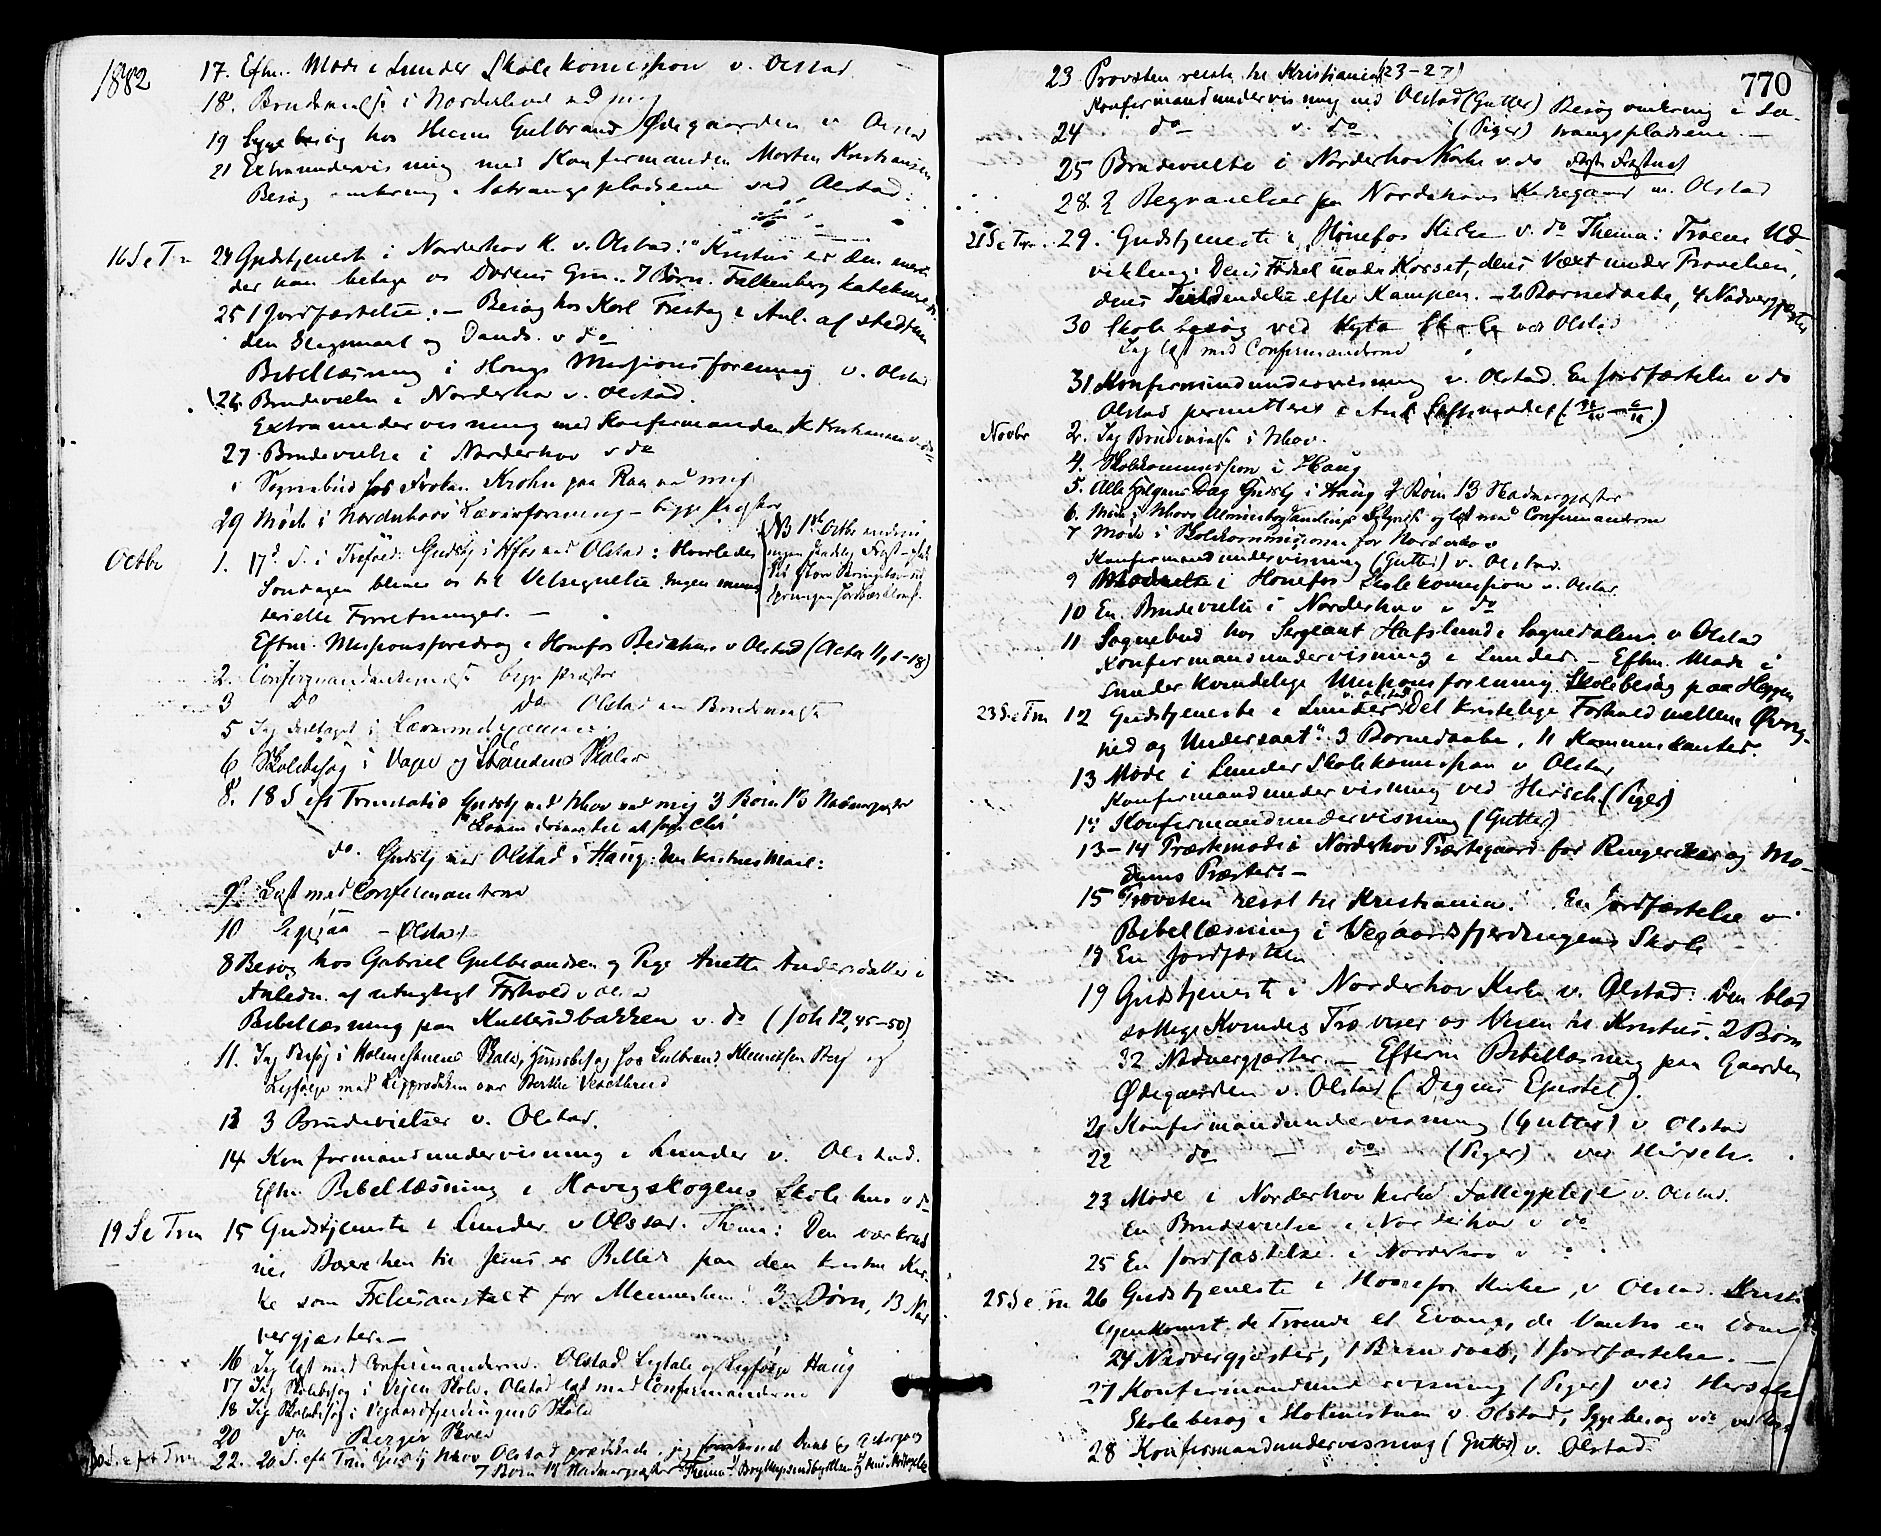 1882
17. Efm. Møde i Lunder Skolekomission v. Olstad.
18. Brudevielse i Norderhov ved mig
19 Sygebesøg hos Gulbrand Ødegaarden v. Olstad
21 Extraundervisning med Konfermanden Morten Kristiansen
Besøg omkring i ved Olstad.
16 S e Trn 24 Gudstjeneste i Norderhov K. v. Olstad: Kristus er den eneste
der kan betage os Dødens 7 Børn. Falkenberg
25 1 Jordfæstelse. — Besøg hos Karl i Anl. af stedfun
den Slagsmaal og Dands. v do
Bibellæsning i Hougs Missionsforening v. Olstad
26. Brudevielse i Norderhov v. Olstad.
Extraundervisning med Konfermanden M Kristiansen v. do
27. Brudevielse i Norderhov v do
Sognebud hos Frøken Krohn paa Raa ved mig
29 Møde i Norderhovs Lærerforening — begge Prester
Octbr 1. 17d S. i Trefold. Gudstj i Hfos ved Olstad: Hvorledes
Søndagen bliver os til Velsignelse. Ingen minis
terielle Forretninger. —
NB 1ste Octbr
Eftm. Missionsforedrag i Hønefos Bedehus v Olstad (Acta 11, 1-18)
2. Confirmandundervisn begge Præster
3 Do do Olstad en Brudevielse
5 Jeg deltaget i
6 Skolebesøg i Vager og Strandens Skoler
8. 18 S eft Trinitatis Gudstj ved Nhov ved mig 3 Børn 13 Nadvergjester
do. Gudstj ved Olstad i Haug: Maal:
9. Læst med Confirmanterne
10 Ligesaa — Olstad
8 Besøg hos Gabriel Gulbrandsen og Pige Anette Andersdatter i
Anledn. af utugtigt Forhold v Olstad
Bibellæsning paa Kullerudbakken v. do (Joh 12, 45-50)
11. Jeg Besøg i Holmestuens Skole, hos Gulbrand Berg og
Ligfølge med Ligprædiken over Berthe
12 3 Brudevielser v. Olstad.
14 Konfermandundervisning i Lunder v. Olstad.
Eftm Bibellæsning i Hovegskogens Skolehus v do
19 S e Trn 15 Gudstjeneste i Lunder v Olstad. Thema: Den værkbrud
nes til Jesus er Billed paa den kristne Kir-
ke som Frelsesanstalt for Mennesken. 3 Børn, 13 Nad
vergjæster. —
16 Jeg læst med Confirmanderne. Olstad Ligtale og Ligfølge Haug
17 Jeg Skolebesøg i Vejen Skole. Olstad læst med Confirmanderne
18 Jeg Skolebesøg i Vegaardfjerdingens Skole
20 do Berger Skole
22. 20 S. eft Trin Gudstj Nhov Olstad prædikede, jeg Daab og Altergang
7 Børn 14 Nadvergjester Thema:
770
23 Provsten reiste til Kristiania (23-27)
Konfermandundervisning ved Olstad (Gutter) Besøg omkring i Sa-
24 do v. do (Piger) trangspladsene. —
25 Brudevielse i Norderhov Kirke v. do
28. 2 Begravelser paa Norderhovs Kirkegaard v. Olstad
21 S e Trn. 29. Gudstjeneste i Hønefos Kirke v. do Thema: Troens Ud-
vikling: Dens Fødsel under Korset, dens Væxt under Prøvelsen,
dens Fuldendelse efter Kampen. — 2 Barnedaabe, 4 Nadvergjæster
30 Skolebesøg ved Hægta Skole ved Olstad
Jeg læst med Confirmanderne
31 Konfermandundervisning v. Olstad. En Jordfæstelse v do
Olstad permitteret i Anl.
Novbr 2. Jeg Brudevielse i Nhov.
4. Skolekommission i Haug
5. Alle Helgens Dag Gudstj i Haug 2 Børn 13 Nadvergjæster
6. Møde i Nhovs og læst med Confirmanderne
7 Møde i Skolekommissionen for Norderhov
Konfermandundervisning (Gutter) v. Olstad.
9 Møde i Hønefos Skolekomission v. Olstad
10 En Brudevielse i Norderhov v do
11 Sognebud hos Sergeant Hafslund i Sognedalen v Olstad
Konfermandundervisning i Lunder. — Eftm. Møde i
Lunder kvindelige Missionsforening Skolebesøg paa Heggen
23 S e Trn 12 Gudstjeneste i Lunder v. Olstad Det kristelige Forhold mellem Øvrig-
hed og Undersaat". 3 Barnedaabe, 11 Kommunikanter.
13 Møde i Lunder Skolekomission v Olstad
Konfermandundervisning ved Hersch. (Piger)
14 Konfermandundervisning (Gutter)
13-14 Præstemøde i Norderhov Præstegaard for Ringerikes og Mo-
dums Præster. —
15 Provsten reist til Kristiania. En Jordfæstelse v
Bibellæsning i Vegaardsfjerdingens Skole
19 En Jordfæstelse
19 Gudstjeneste i Norderhov Kirke v. Olstad: Den blod
sottige Kvindes Tro viser os Veien til Kristus. 2 Børn
32 Nadvergjæster. — Efterm Bibellæsning paa Gaarden
Ødegaarden v. Olstad (Dagens Epistel).
21 Konfermandundervisning (Gutter) v Olstad
22 do — do (Piger) ved Hersch.
23 Møde i Norderhov Fattigpleje v. Olstad.
En Brudevielse i Norderhov v do
25 En Jordfæstelse i Norderhov v
25 S e Trn 26 Gudstjeneste i Hønefos Kirke, v Olstad. Kristi
Gjenkomst de Troende et Evang, de Vantro en Dom
24 Nadvergjæster, 1 Barnedaab, 1 Jordfæstelse. —
27 Konfermandundervisning (Piger) ved Hersch
Skolebesøg i Holmestuen v. Olstad, Sygebesøg
28 Konfermandundervisning (Gutter) v. Olstad.